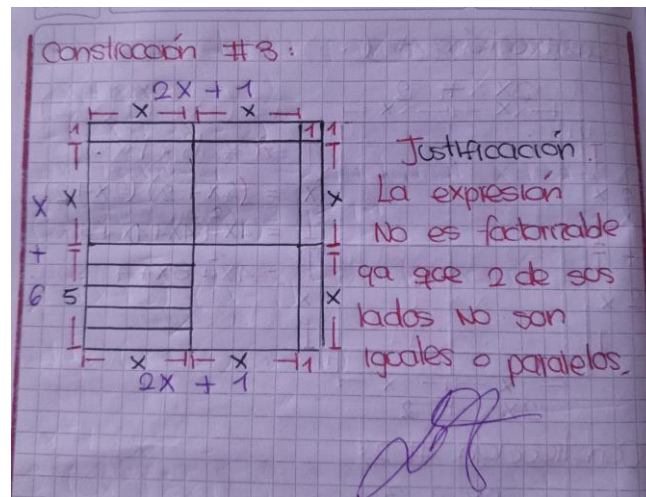 Construcción #3:
2x + 1
x x
1 1 1
x x
x + 6
5 x
x x 1
2x + 1
Justificación.
La expresión
No es factorizable
ya que 2 de sus
lados No son
iguales o paralelos.